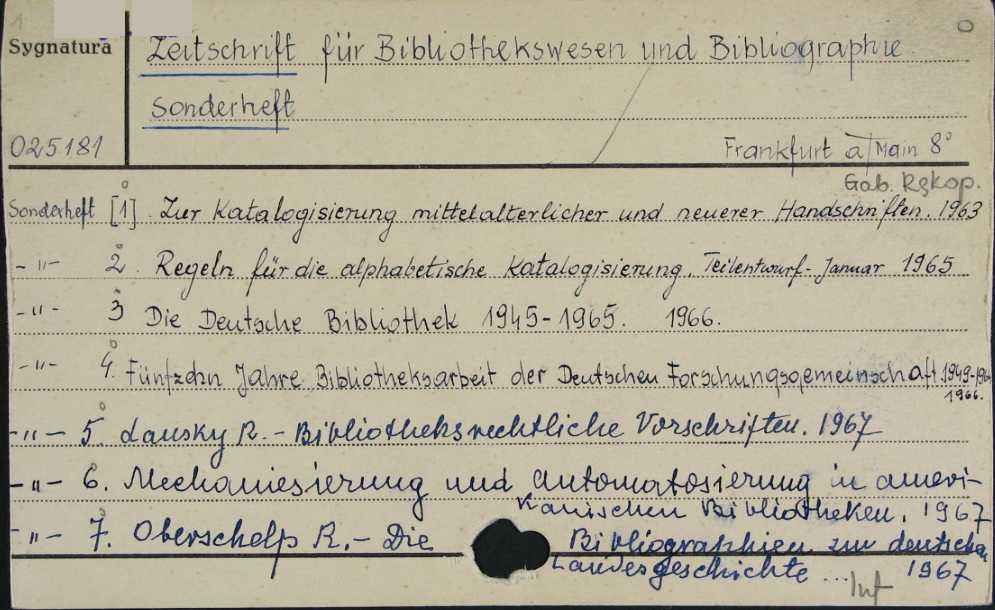 1
Sygnatura Zeitschrift für Bibliothekswesen und Bibliographie
Sonderheft
025181 Frankfurt a/Main 8°
Gab. Rękop.
Sonderheft [1]. Zur Katalogisierung mittelalterlicher und neuerer Handschriften. 1963
-"- 2. Regeln für die alphabetische Katalogisierung. Teilentwurf - Januar 1965
-"- 3 Die Deutsche Bibliothek 1945-1965. 1966.
-"- 4. Fünfzehn Jahre Bibliotheksarbeit der Deutschen Forschungsgemeinschaft 1949-
1966.
-"- 5. Lansky R. - Bibliotheksrechtliche Vorschriften. 1967
-"- 6. Mechaniesierung und Automatosierung in ameri-
kanischen Bibliotheken. 1967
-"- 7. Oberschelp R. - Die Bibliographien zur deutschen
Landesgeschichte ... 1967
Inf